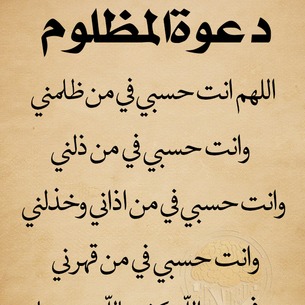 دعوة المظلوم
اللهم انت حسبي في من ظلمني
وانت حسبي في من ذلني
وانت حسبي في من اذاني وخذلني
وانت حسبي في من قهرني